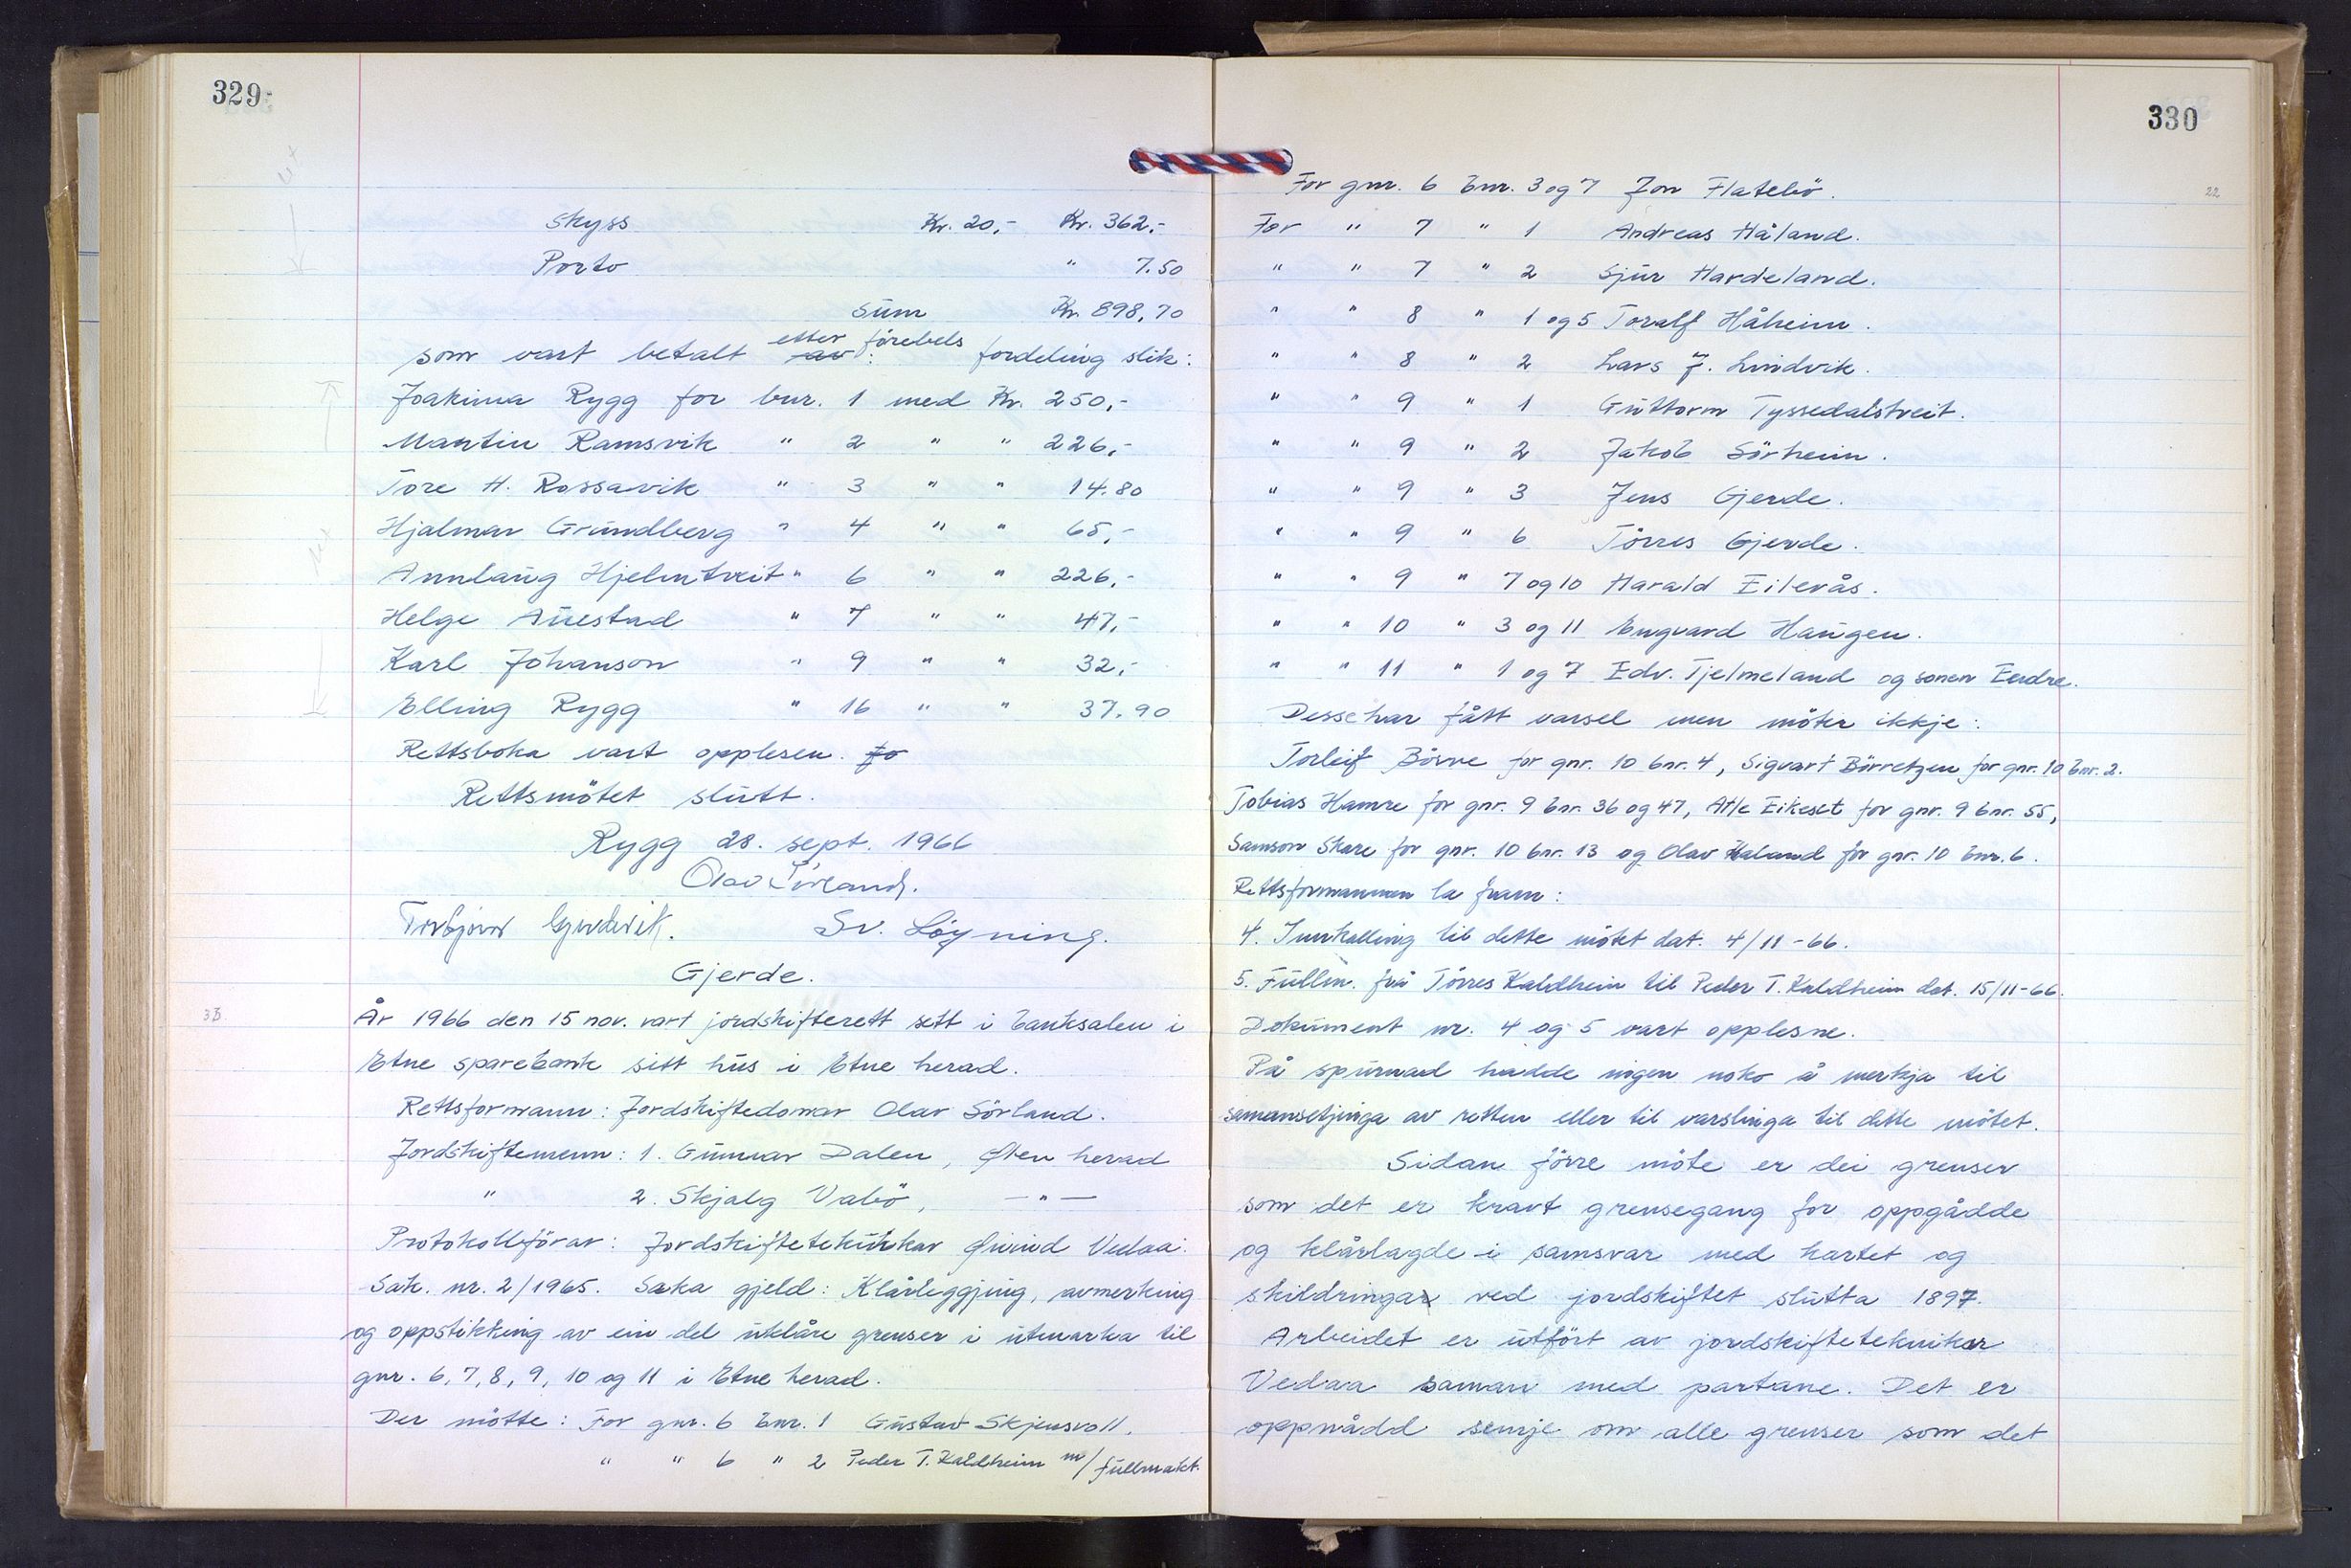 329
Skyss Kr. 20,- Kr. 362,-
Porto " 7.50
Sum Kr. 898,70
som vart betalt etter förebels fordeling slik:
Joakima Rygg for bnr. 1 med Kr. 250,-
Martin Ramsvik " 2 " " 226,-
Tore H. Rossavik " 3 " " 14.80
Hjalmar Grundberg " 4 " " 65,-
Annlaug Hjelmtveit " 6 " " 226,-
Helge Auestad " 7 " " 47,-
Karl Johanson " 9 " " 32,-
Elling Rygg " 16 " " 37.90
Rettsboka vart opplesen. Jo
Rettsmötet slutt.
Rygg 28. sept. 1966
Olav Sörland.
Torbjörn Gjerdevik. Sv. Löyning.
Gjerde.
År 1966 den 15 nov. vart jordskifterett sett i banksalen i
Etne sparebank sitt hus i Etne herad.
Rettsformann: Jordskiftedomar Olav Sörland.
Jordskiftemenn: 1. Gunnar Dalen, Ølen herad
" 2. Skjalg Vabö, — " —
Protokollförar: Jordskifteteknikar Øivind Vedaa.
Sak. nr. 2/1965. Saka gjeld: Klårleggjing, avmerking
og oppstikking av ein del uklåre grenser i utmarka til
gnr. 6, 7, 8, 9, 10 og 11 i Etne herad.
Der mötte: For gnr. 6 bnr. 1 Gustav Skjensvoll.
" " 6 " 2 Peder T. Kaldheim m/fullmakt.
330
22
For gnr. 6 bnr. 3 og 7 Jon Flatebö.
For " 7 " 1 Andreas Håland.
" " 7 " 2 Sjur Hardeland.
" " 8 " 1 og 5 Toralf Håheim.
" " 8 " 2 Lars J. Lindvik.
" " 9 " 1 Guttorm Tyssedalstveit.
" " 9 " 2 Jakob Sörheim.
" " 9 " 3 Jens Gjerde.
" " 9 " 6 Törres Gjerde.
" " 9 " 7 og 10 Harald Eilevås.
" " 10 " 3 og 11 Engvard Haugen.
" " 11 " 1 og 7 Edv. Tjelmeland og sonen Endre.
Desse har fått varsel men möter ikkje:
Torleif Börve for gnr. 10 bnr. 4, Sigvart Börretzen for gnr. 10 bnr. 2.
Tobias Hamre for gnr. 9 bnr. 36 og 47, Atle Eikeset for gnr. 9 bnr. 55,
Samson Skare for gnr. 10 bnr. 13 og Olav Håland for gnr. 10 bnr. 6.
Rettsformannen la fram:
4. Innkalling til dette mötet dat. 4/11-66.
5. Fullm. frå Törres Kaldheim til Peder T. Kaldheim dat. 15/11-66.
Dokument nr. 4 og 5 vart opplesne.
På spurnad hadde ingen noko å merkja til
samansetjinga av retten eller til varslinga til dette mötet.
Sidan förre möte er dei grenser
som det er kravt grensegang for oppgådde
og klårlagde i samsvar med kartet og
skildringar ved jordskiftet slutta 1897.
Arbeidet er utfört av jordskifteteknikar
Vedaa saman med partane. Det er
oppnådd semje om alle grenser som det